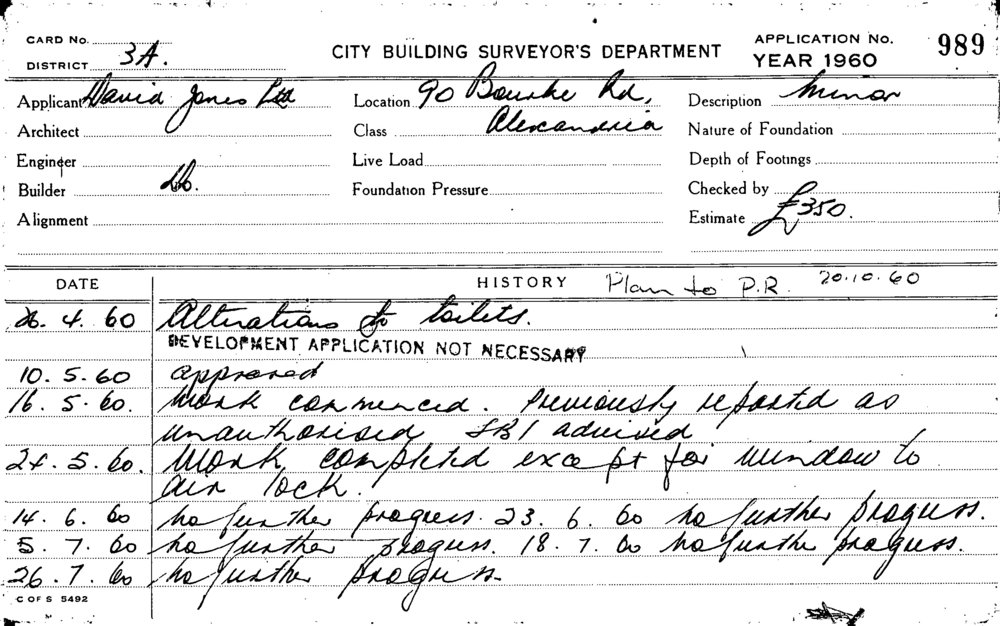 CARD No.
DISTRICT 3A.
CITY BUILDING SURVEYOR'S DEPARTMENT
APPLICATION No. 989
YEAR 1960
Applicant David Jones Ltd
Location 90 Bourke Rd,
Alexandria
Description Minor
Architect
Class
Nature of Foundation
Engineer
Live Load
Depth of Footings
Builder Do.
Foundation Pressure
Checked by
Alignment
Estimate £350.
DATE
HISTORY Plan to P.R. 20.10.60
26.4.60 Alterations to toilets.
DEVELOPMENT APPLICATION NOT NECESSARY
10.5.60 approved
16.5.60. Work commenced. Previously reported as
unauthorised advised
24.5.60. Work completed except for window to
air lock.
14.6.60 no further progress. 23.6.60 no further progress.
5.7.60 no further progress. 18.7.60 no further progress.
26.7.60 no further progress.
C OF S 5492